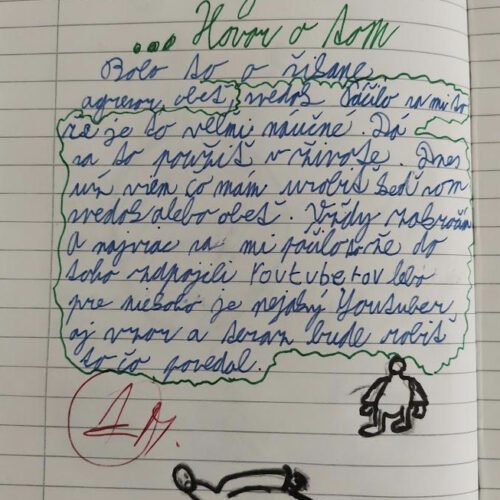 ... Hovor o tom
Bolo to o šikane
agresor, obeť, svedok Páčilo sa mi to
že je to veľmi náučné. Dá
sa to použiť v živote. Dnes
už viem čo mám urobiť keď som
svedok alebo obeť. Vždy zakročím
a najviac sa mi páčilo že do
toho zapojili Youtuberov lebo
pre niekoho je nejaký Youtuber
aj vzor a teraz bude robiť
to čo povedal.
1